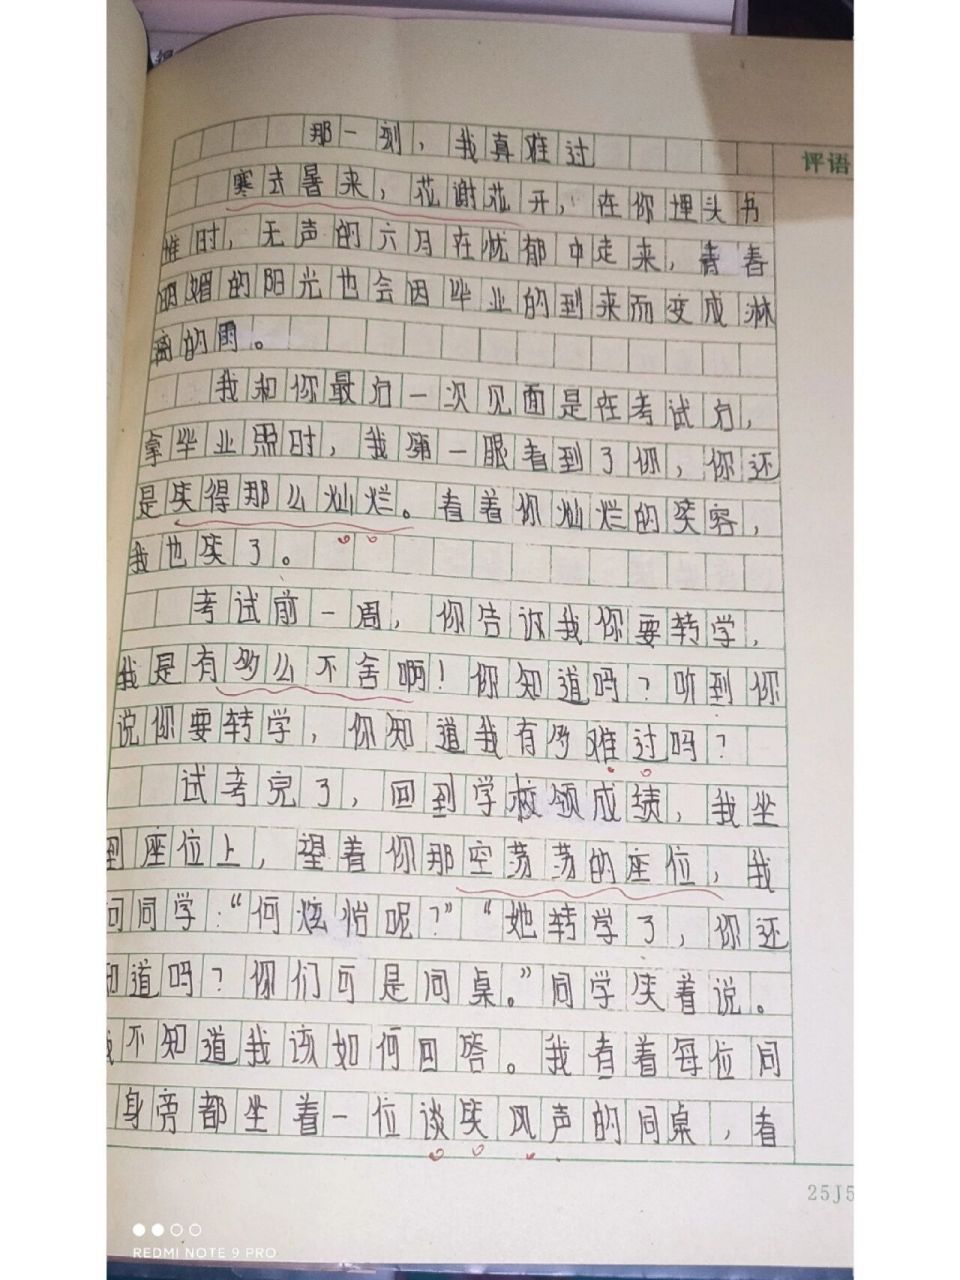 那一刻，我真难过
评语
寒去暑来，花谢花开，在你埋头书
堆时，无声的六月在忧郁中走来，青春
明媚的阳光也会因毕业的到来而变成淋
离的雨。
我和你最后一次见面是在考试后，
拿毕业照时，我第一眼看到了你，你还
是笑得那么灿烂。看着你灿烂的笑容，
我也笑了。
考试前一周，你告诉我你要转学，
我是有多么不舍啊！你知道吗？听到你
说你要转学，你知道我有多难过吗？
试考完了，回到学校领成绩，我坐
到座位上，望着你那空荡荡的座位，我
问同学：“何炫怡呢？”“她转学了，你还
知道吗？你们可是同桌。”同学笑着说。
我不知道我该如何回答。我看着每位同
身旁都坐着一位谈笑风声的同桌，看
25J5
REDMI NOTE 9 PRO